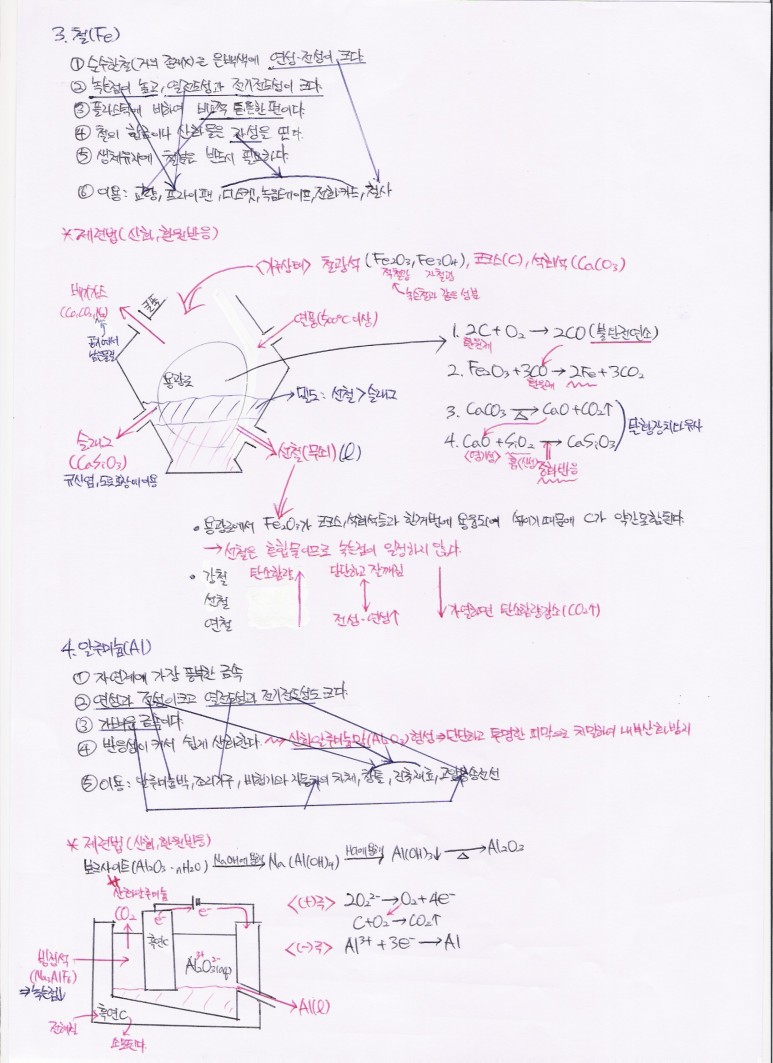 3. 철(Fe)
① 순수한철(거의 존재X)은 은백색에 연성·전성이 크다.
② 녹는점이 높고, 열전도성과 전기전도성이 크다.
③ 플라스틱에 비하여 비교적 튼튼한 편이다.
④ 철의 합금이나 산화물은 자성을 띤다.
⑤ 생체유지에 철분은 반드시 필요하다.
⑥ 이용: 교량, 프라이팬, 디스켓, 녹음테이프, 전화카드, 철사
* 제련법(산화, 환원반응)
<가루상태> 철광석 (Fe2O3, Fe3O4), 코크스(C), 석회석(CaCO3)
적철광 자철광
녹슨철과 같은 성분
배기가스
(CO, CO2, N2)
공기에서
남은물질
열풍(1500°C이상)
용광로
밀도: 선철>슬래그
슬래그
(CaSiO3)
규산염, 도로포장에이용
선철(무쇠)(l)
1. 2C+O2→2CO(불완전연소)
환원제
2. Fe2O3+3CO→2Fe+3CO2
환원제
3. CaCO3 →△ CaO+CO2↑
4. CaO+SiO2→CaSiO3
<염기성> 흙(산성)
중화반응
• 용광로에서 Fe2O3가 코크스, 석회석등과 한꺼번에 용융되어 섞이기때문에 C가 약간포함된다.
→선철은 혼합물이므로 녹는점이 일정하지 않다.
• 강철 탄소함량 단단하고 잘깨짐
선철
연철 전성·연성↑
가열하면 탄소함량감소(CO2↑)
4. 알루미늄(Al)
① 자연계에 가장 풍부한 금속
② 연성과 전성이크고 열전도성과 전기전도성도 크다.
③ 가벼운 금속이다.
④ 반응성이 커서 쉽게 산화한다. 산화알루미늄막(Al2O3)형성⇒단단하고 투명한 피막으로 치밀하여 내부산화방지
⑤ 이용: 알루미늄박, 조리기구, 비행기와 자동차의 차체, 창틀, 건축재료, 고압송전선
* 제련법(산화, 환원반응)
보크사이트(Al2O3·nH2O) NaOH에용해→ Na(Al(OH)4) → Al(OH)3↓ →△ Al2O3
산화알루미늄
CO2
e-
e-
흑연C
Al3+
Al2O3(aq)
빙정석
(Na3AlF6)
⇒녹는점↓
흑연C
전해질
소모된다.
Al(l)
<(+)극> 2O2-→O2+4e-
C+O2→CO2↑
<(-)극> Al3++3e-→Al